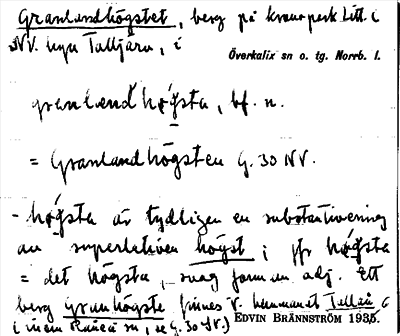 Granlandhögstet, berg på kronopark Litt. i
NV. hyn Talltjärn, i
Överkalix sn o. tg. Norrb. l.
granlænd högsta, bf. n.
= Granlandhögsten G. 30 NV.
- högsta är tydligen en substantivering
av superlativen högst; jfr högsta
= det högsta, svag form av adj. Ett
berg Granhögste finnes V. hemmanet
i inom Råneå sn, se G. 30 NV.) EDVIN BRÄNNSTRÖM 1935.